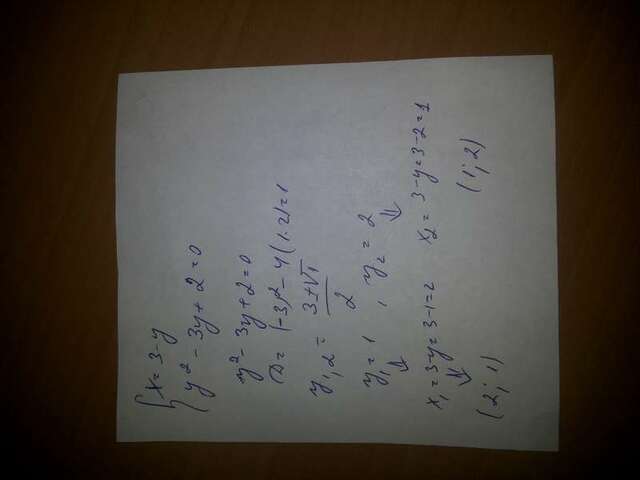 { x = 3 - y
y² - 3y + 2 = 0
y² - 3y + 2 = 0
D = (-3)² - 4(1·2) = 1
y₁,₂ = (3 ± √1) / 2
y₁ = 1 , y₂ = 2
⇓ ⇓
x₁ = 3-y = 3-1 = 2 x₂ = 3-y = 3-2 = 1
⇓
(2; 1) (1; 2)